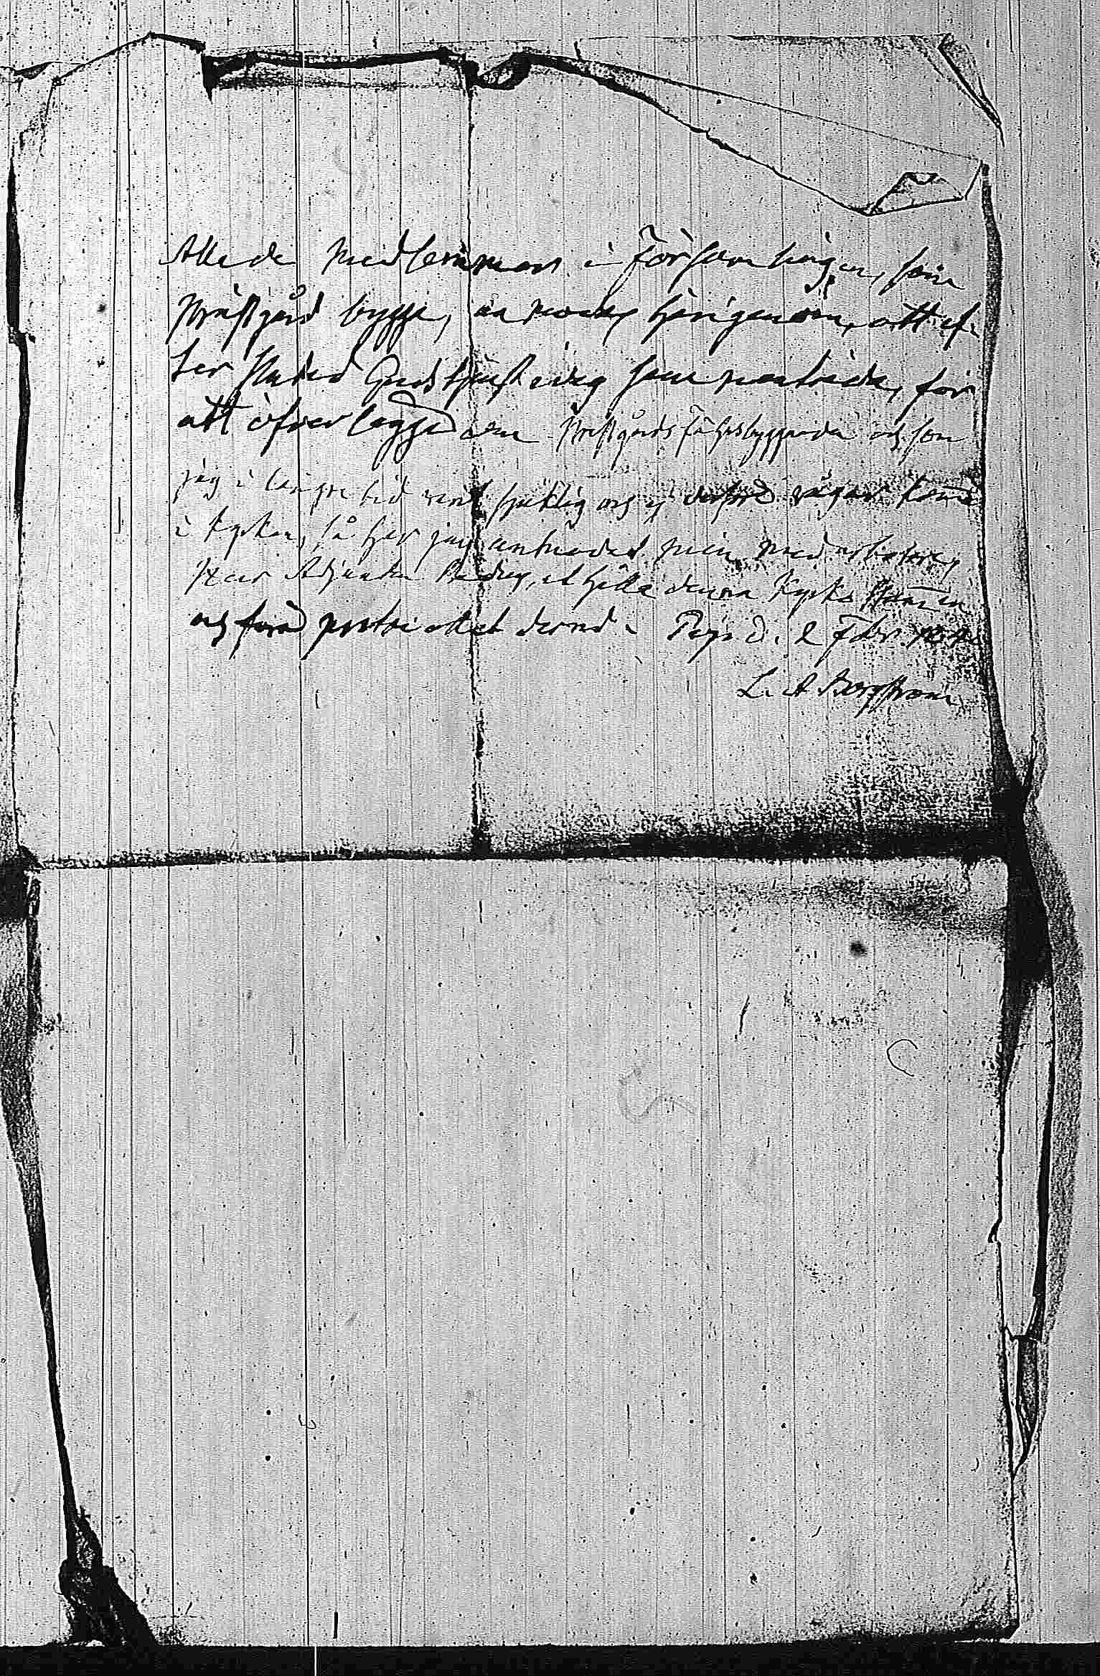 Alle de Medlemmar i Församlingen, som
Prästgård bygga, anmodas härigenom, att ef-
ter slutad Gudstjenst i dag sammanträda, för
att öfverlägga om Prestgårds byggande och som
jag i längre tid varit sjuklig och ej vågar komma
i Kyrkan, så har jag anmodat min medarbetare
Herr Adjunkten att hålla denna Kyrko stämma
och föra protocollet dervid. d. 2 Febr
L. A. Borgström